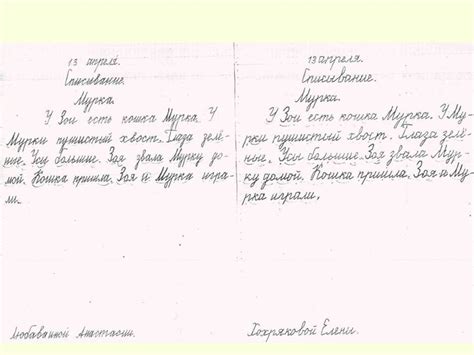 13 апреля.
Списывание.
Мурка.
У Зои есть кошка Мурка. У
Мурки пушистый хвост. Глаза зелё-
ные. Усы большие. Зоя звала Мурку до-
мой. Кошка пришла. Зоя и Мурка игра-
ли.
Любавиной Анастасии.
13 апреля.
Списывание.
Мурка.
У Зои есть кошка Мурка. У Му-
рки пушистый хвост. Глаза зелё-
ные. Усы большие. Зоя звала Мур-
ку домой. Кошка пришла. Зоя и Му-
рка играли.
Хохряковой Елены.